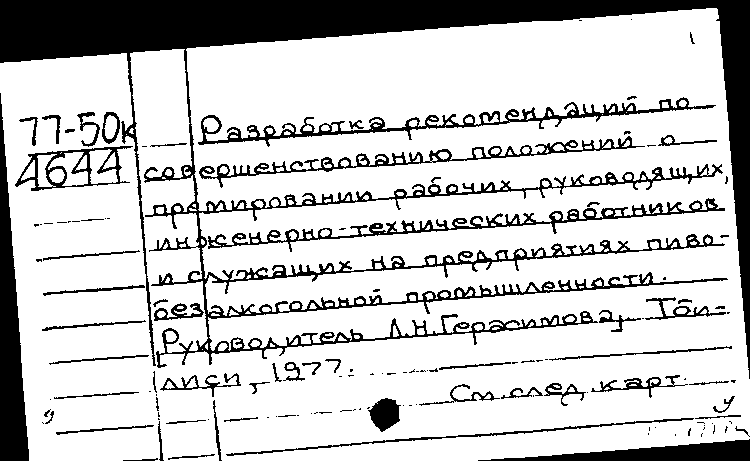 77-50к
4644
Разработка рекомендаций по
совершенствованию положений о
премировании рабочих, руководящих,
инженерно-технических работников
и служащих на предприятиях пиво-
безалкогольной промышленности.
[Руководитель Л.Н.Герасимова]. Тби=
лиси, 1977.
См.след.карт.
у